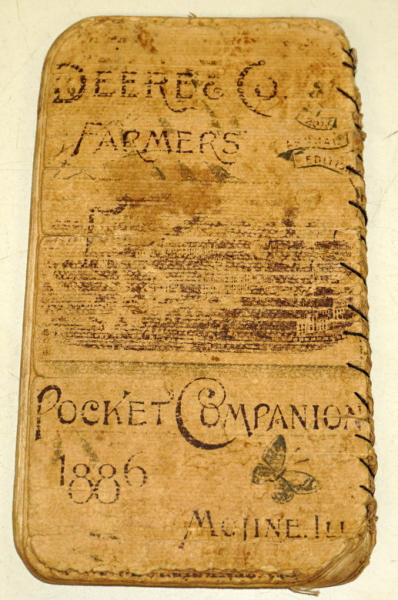 DEERE & CO.
FARMERS
ANNUAL
EDITION
POCKET COMPANION
1886
MOLINE. ILL